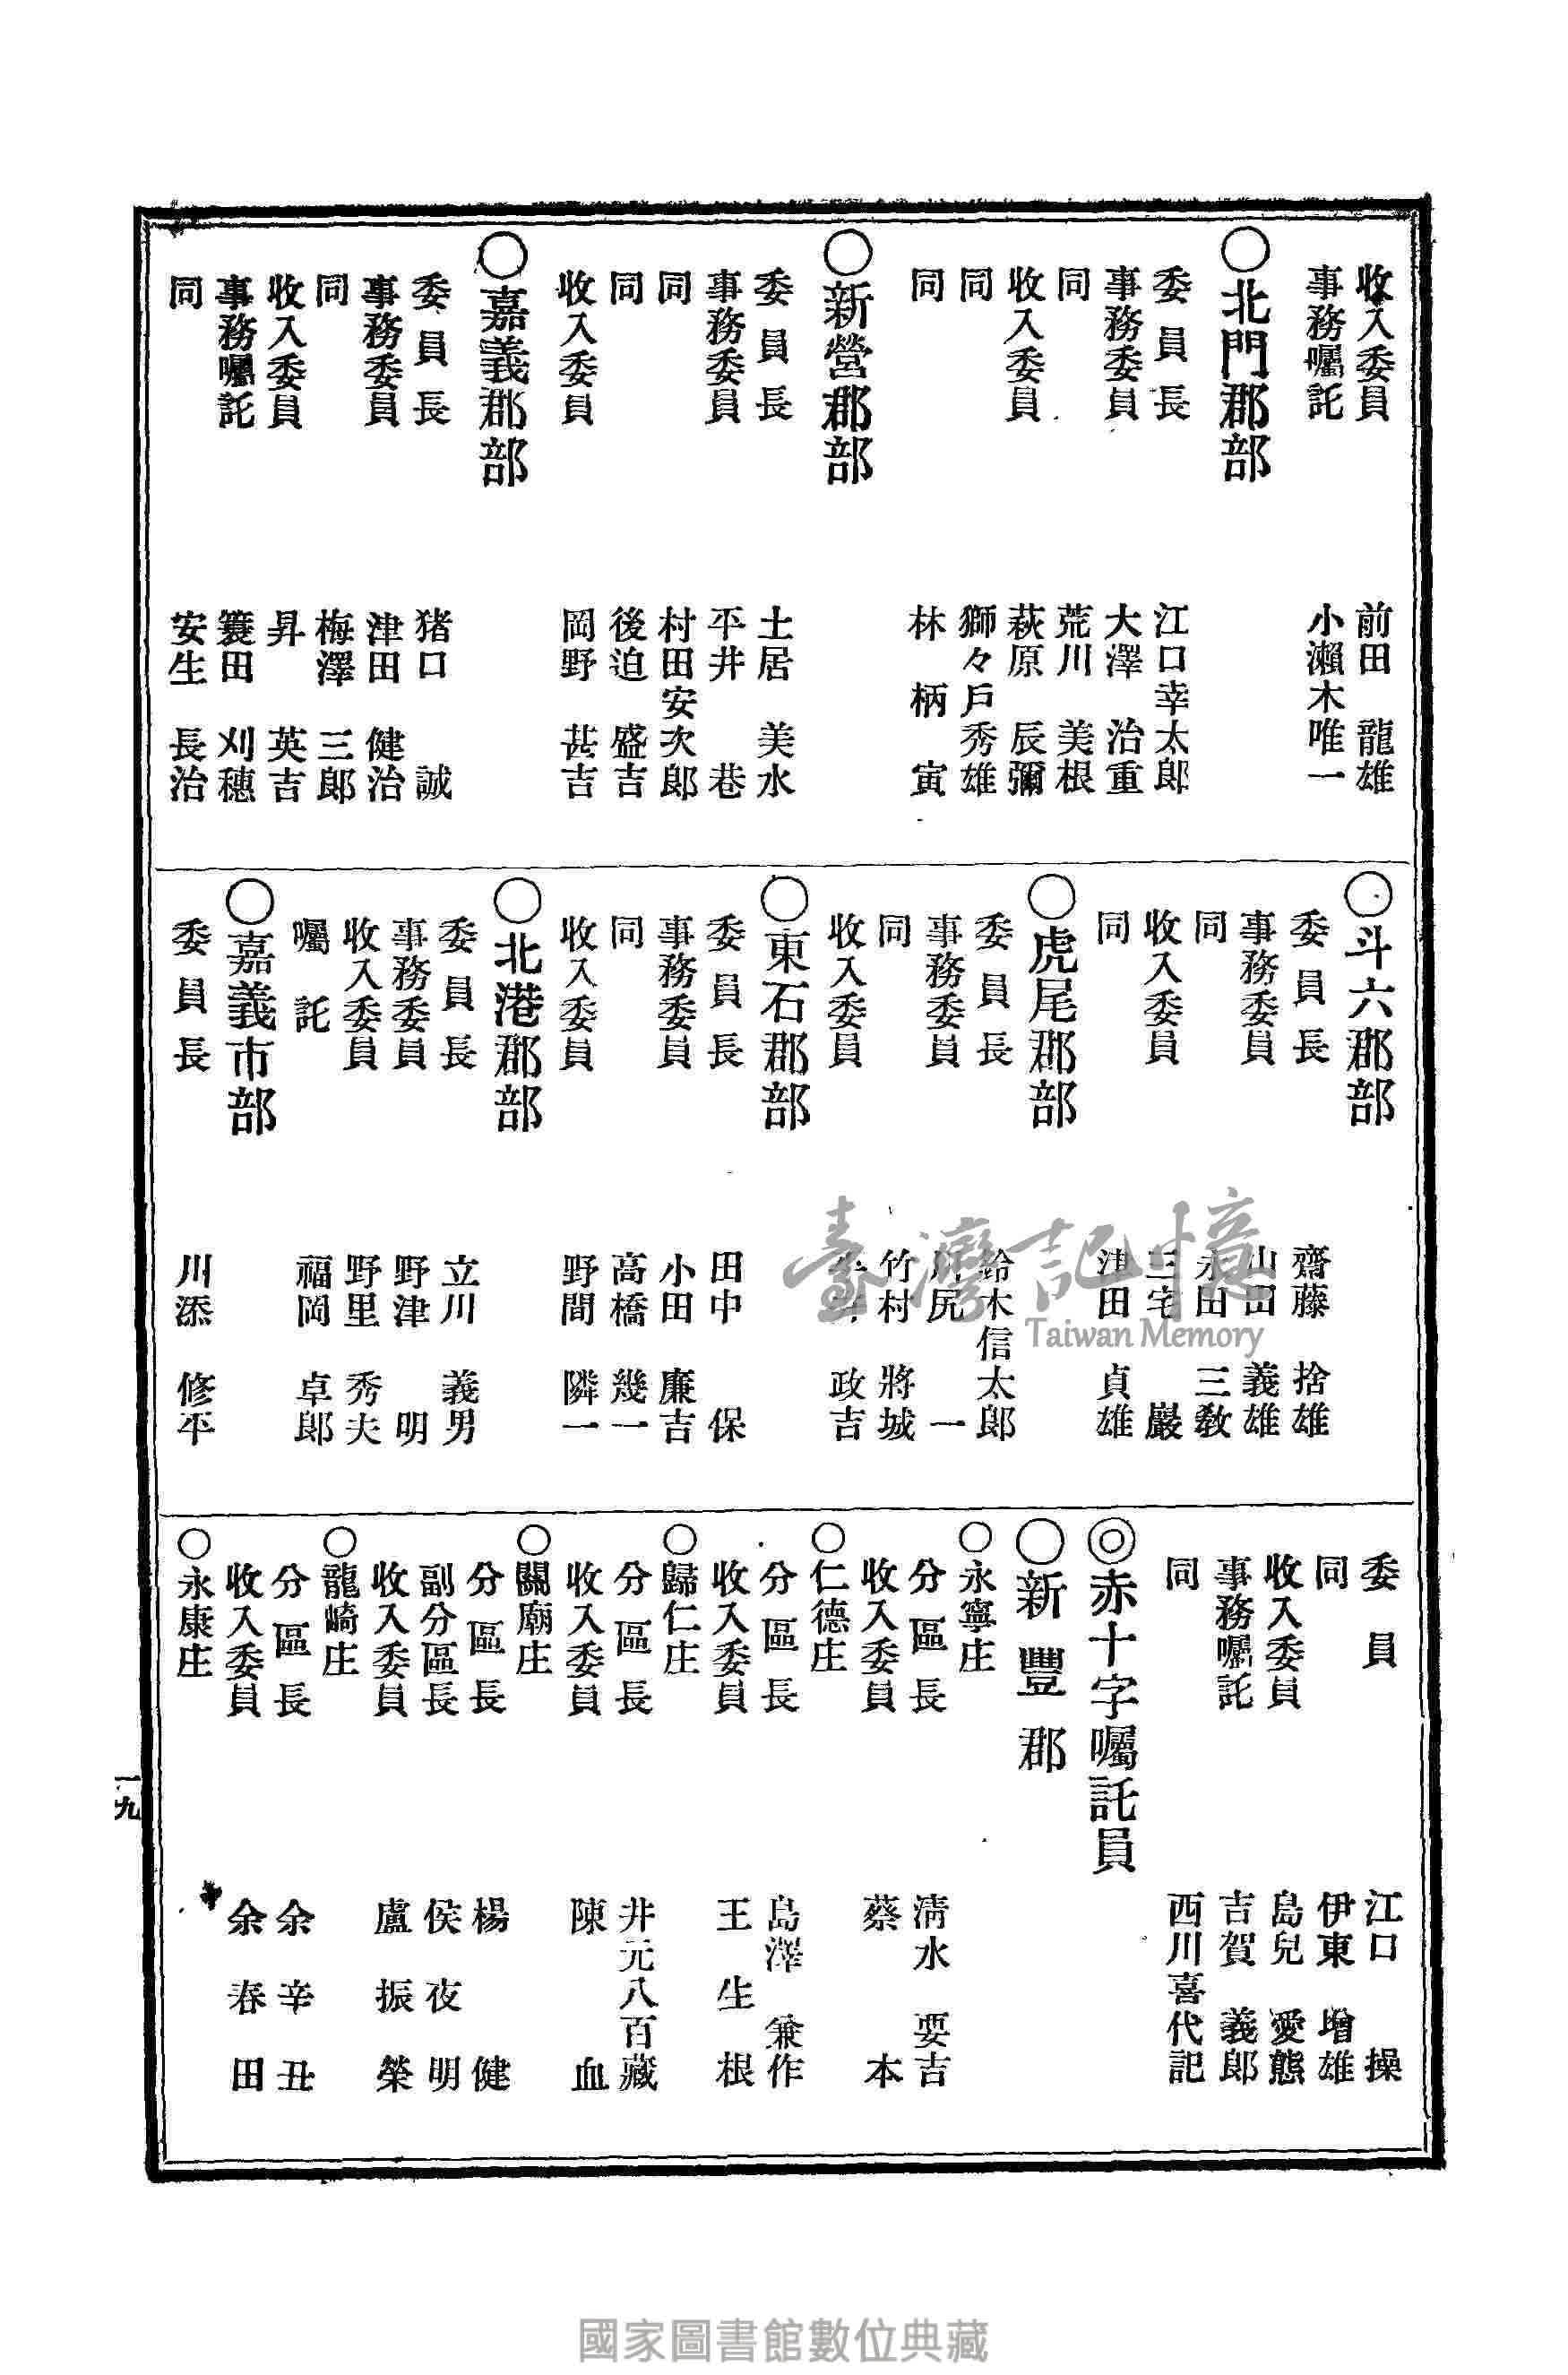 收入委員 前田 龍雄
事務囑託 小瀨木唯一
○北門郡部
委員長 江口幸太郎
事務委員 大澤 治重
同 荒川 美根
收入委員 萩原 辰彌
同 獅々戶秀雄
同 林 柄 寅
○新營郡部
委員長 土居 美水
事務委員 平井 巷
同 村田安次郎
同 後迫 盛吉
收入委員 岡野 甚吉
○嘉義郡部
委員長 猪口 誠
事務委員 津田 健治
同 梅澤 三郎
收入委員 昇 英吉
事務囑託 簑田 刈穗
同 安生 長治
○斗六郡部
委員長 齋藤 捨雄
事務委員 山田 義雄
同 永田 三教
收入委員 三宅 巖
同 津田 貞雄
○虎尾郡部
委員長 鈴木信太郎
事務委員 川尻 一
同 竹村 將城
收入委員 政吉
○東石郡部
委員長 田中 保
事務委員 小田 廉吉
同 高橋 幾一
收入委員 野間 隣一
○北港郡部
委員長 立川 義男
事務委員 野津 明
收入委員 野里 秀夫
囑託 福岡 卓郎
○嘉義市部
委員長 川添 修平
委員 江口 操
同 伊東 增雄
收入委員 島兒 愛態
事務囑託 吉賀 義郎
同 西川喜代記
◎赤十字囑託員
○新豐郡
○永寧庄
分區長 淸水 要吉
收入委員 蔡 本
○仁德庄
分區長 島澤 兼作
收入委員 王 生 根
○歸仁庄
分區長 井元八百藏
收入委員 陳 血
○關廟庄
分區長 楊 健
副分區長 侯 夜 明
收入委員 盧 振 榮
○龍崎庄
分區長 余 辛 丑
收入委員 余 春 田
○永康庄
一九
臺灣記憶
Taiwan Memory
國家圖書館數位典藏